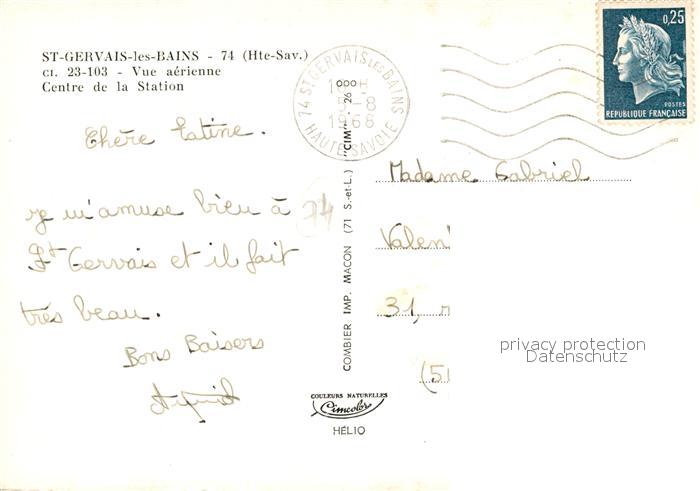 ST-GERVAIS-les-BAINS - 74 (Hte-Sav.)
CI. 23-103 - Vue aérienne
Centre de la Station
74 ST GERVAIS LES BAINS
5-8
1968
HAUTE SAVOIE
0,25
POSTES
REPUBLIQUE FRANÇAISE
Chère
je m'amuse bien à
St Gervais et il fait
très beau.
Bons Baisers
74
COMBIER IMP. MACON (71 S.-et-L.) "CIM"
Madame Gabriel
Valen
31, r
(51
privacy protection
Datenschutz
COULEURS NATURELLES
Cimcolor
HÉLIO